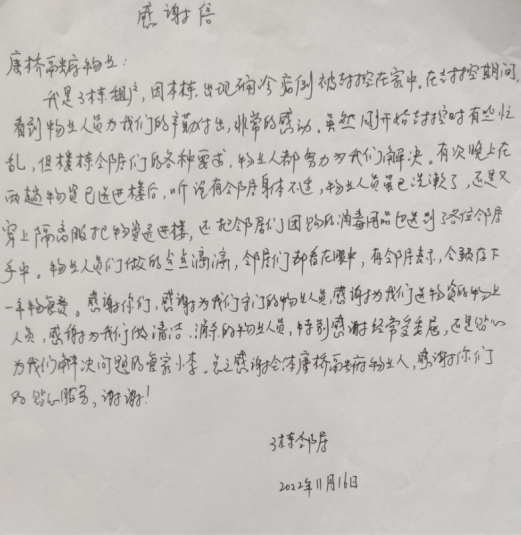 感谢信
康桥南府物业:
我是3栋租户,因本栋出现确诊病例被封控在家中。在封控期间,
看到物业人员为我们的辛勤付出,非常的感动。虽然刚开始封控时有些忙
乱,但楼栋邻居们的各种要求,物业人都努力为我们解决。有次晚上在
两趟物资已送进楼后,听说有邻居身体不适,物业人员虽已洗漱了,还是又
穿上隔离服把物资送进楼,还把邻居们团购的消毒用品也送到了各位邻居
手中。物业人员们做的点点滴滴,邻居们都看在眼中,有邻居表示,今年存下
一年物业费。感谢你们,感谢为我们守门的物业人员,感谢为我们送物资的物业
人员,感谢为我们做清洁、消杀的物业人员,特别感谢经常受委屈,还是贴心
为我们解决问题的管家小李。总之感谢全体康桥南府物业人,感谢你们
的贴心服务,谢谢!
3栋邻居
2022年11月16日